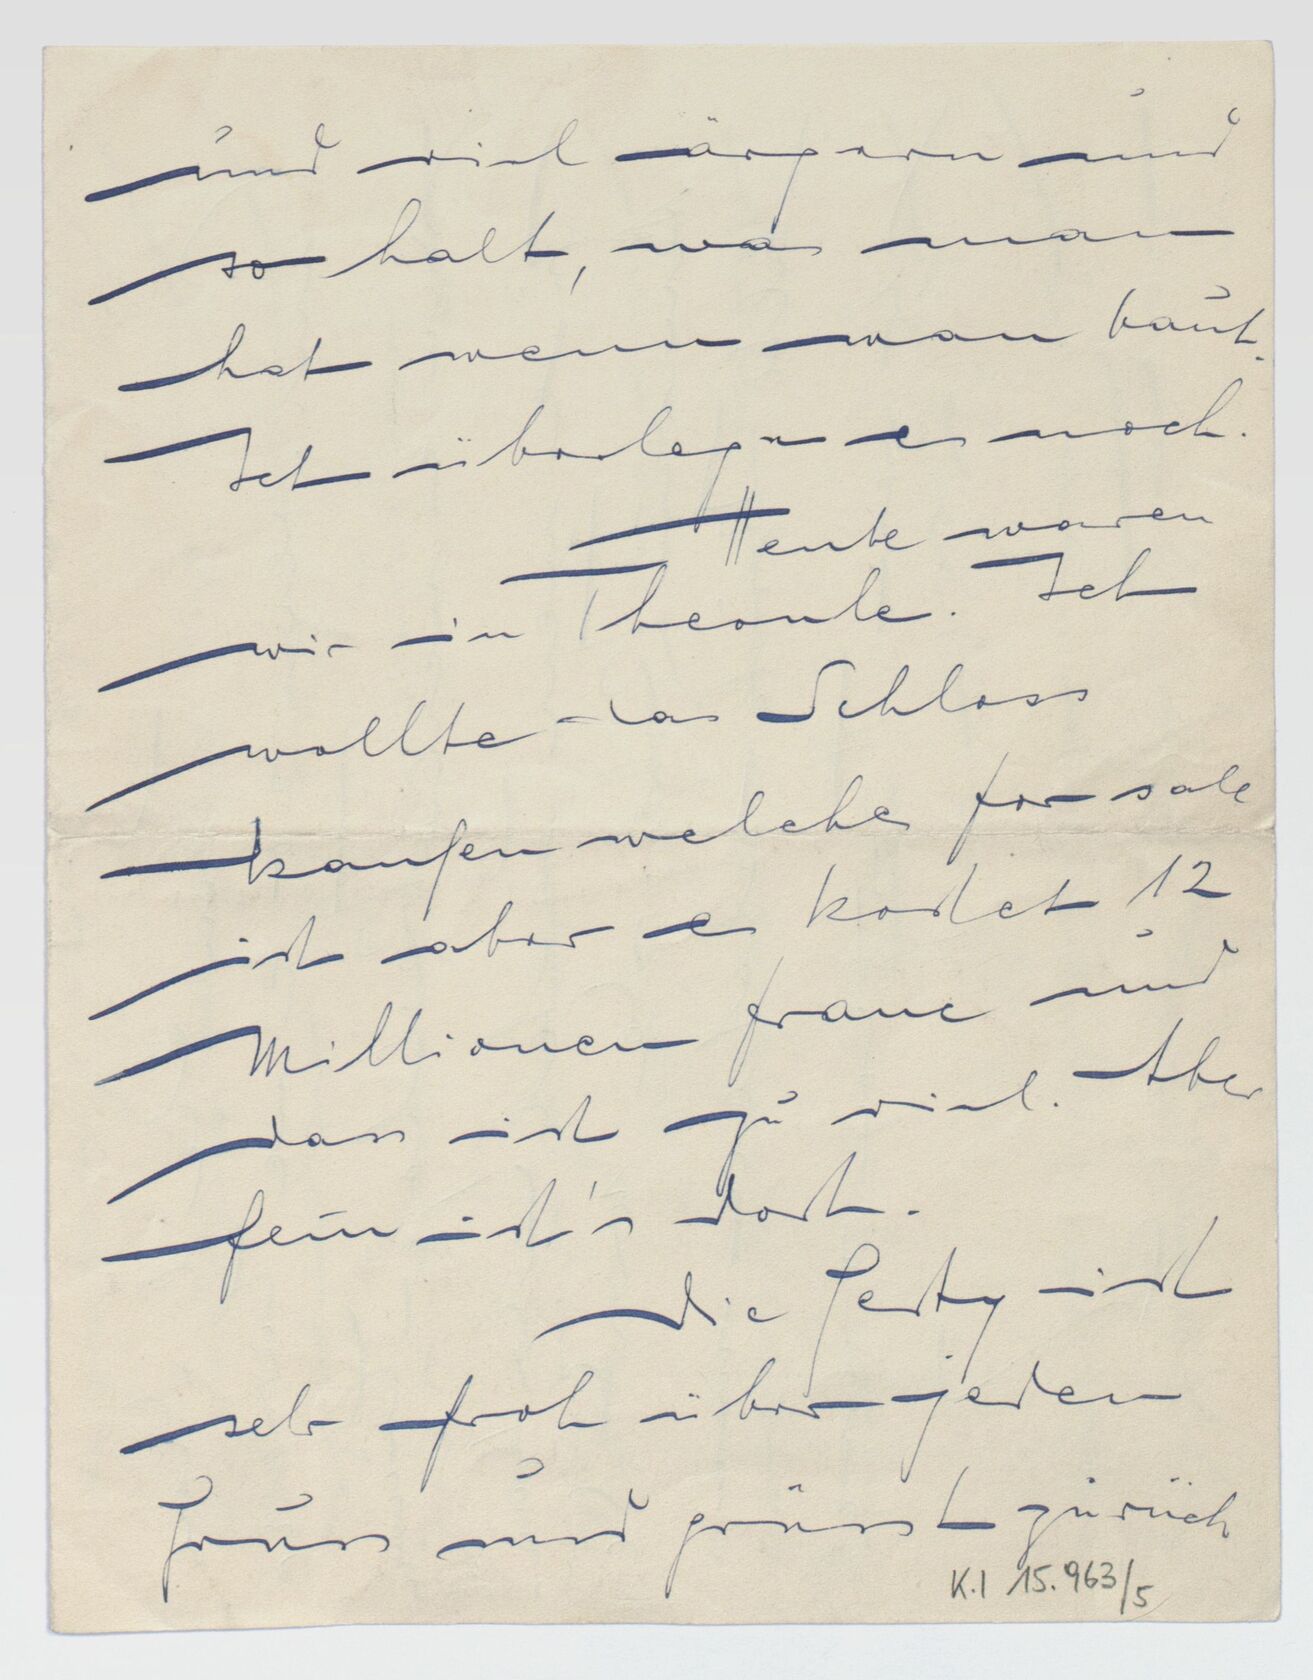 und viel ärgern und
so halt, was man
hat wenn man baut.
Ich überlege es noch.
Heute waren
wir in Theoule. Ich
wollte das Schloss
kaufen welches for sale
ist aber es kostet 12
Millionen franc und
dass ist zu viel. Aber
fein ist's dort.
Die Gerty ist
sehr froh über jeden
Gruss und grüsst zurück
K.I 15.963/5